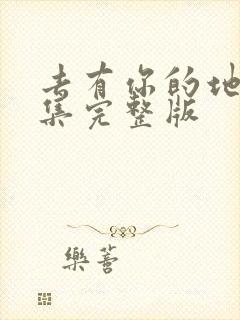 去有你的地
集完整版
樂善